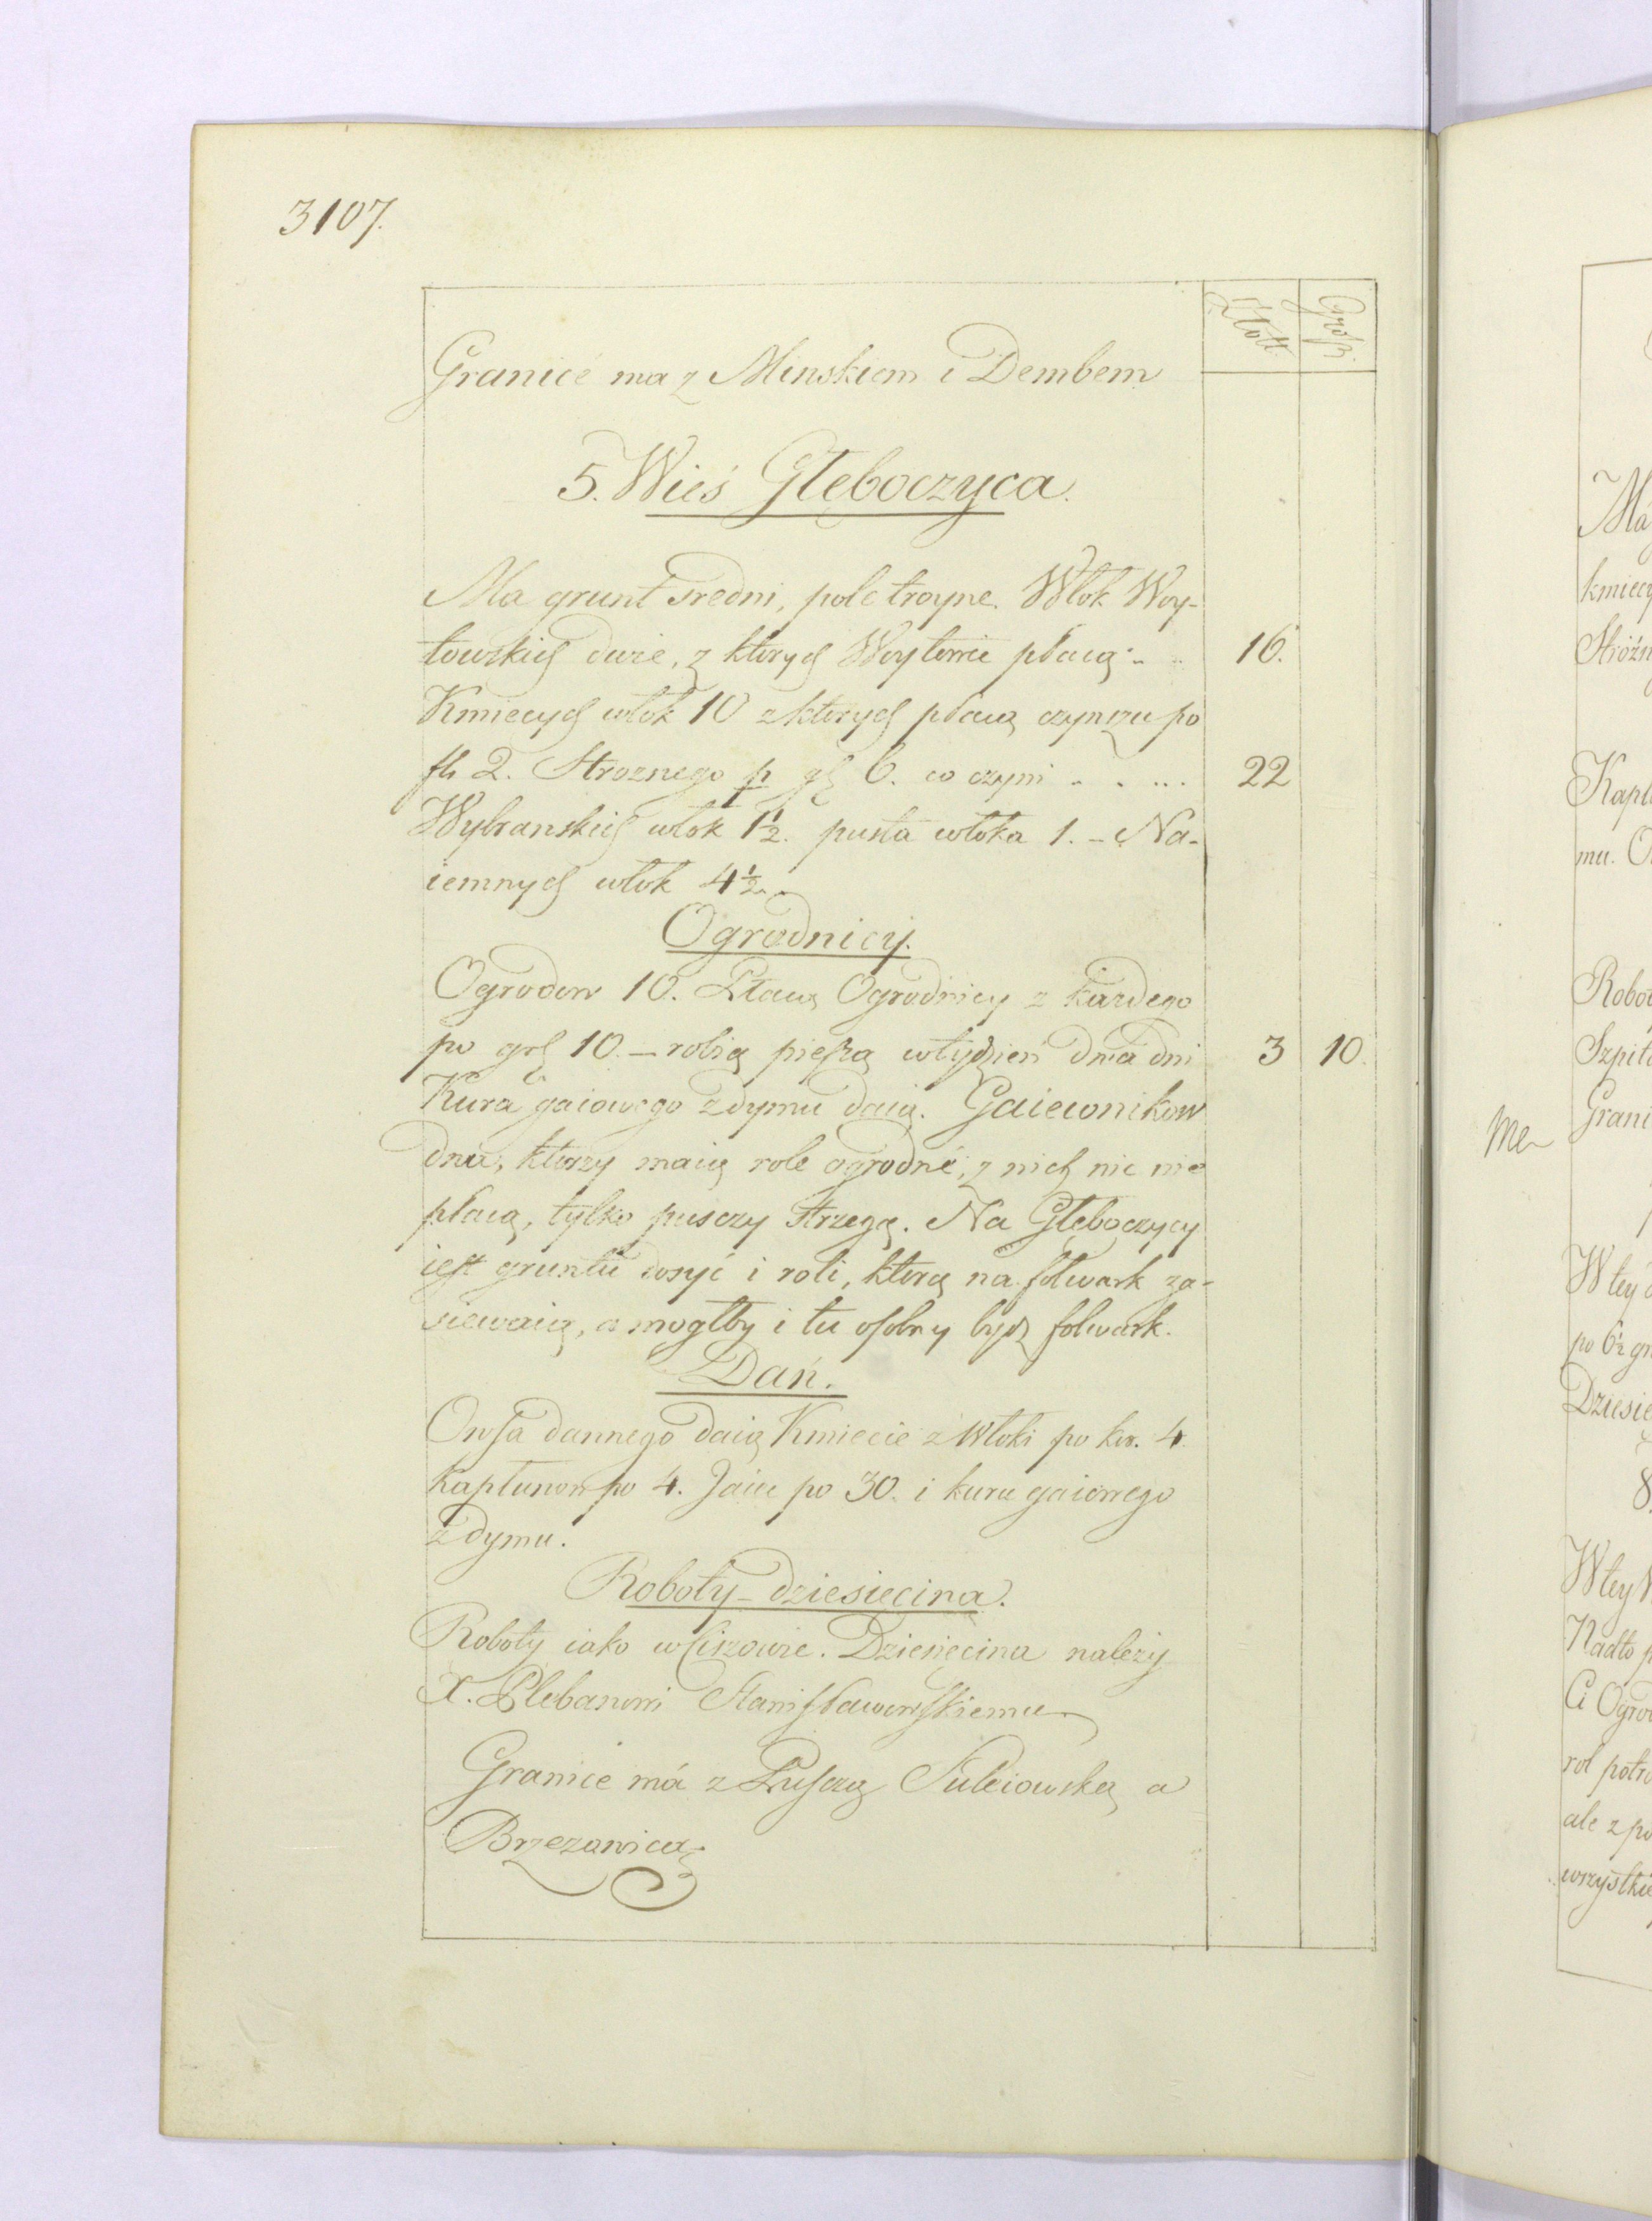 3107.
Złott
Grosz.
Granice ma z Minskiem i Dembem
5. Wieś Głeboczyca.
Ma grunt sredni, pole troyne. Włok Woy-
towskich dwie, z ktorych Woytowie płacą . . 16.
Kmiecych włok 10 z ktorych płacą czynszu po
fl. 2. Stroznego p gs 6. co czyni . . . . . 22
Wybranskich włok 1½. pusta włoka 1. – Na-
iemnych włok 4½.
Ogrodnicy.
Ogrodow 10. Płacą Ogrodnicy z każdego
po grs 10. – robią pieszą wtydzień dwa dni 3 10.
Kura gaiowego z dymu daią. Gaiewnikow
dwa, ktorzy maią role ogrodne, z nich nic nie
płacą, tylko pusczy strzegą. Na Głęboczycy
iest gruntu dosyć i roli, ktorą na folwark za-
siewaią, a mogłby i tu osobny bydz folwark.
Dań.
Owsa dannego daią Kmiecie z Włoki po kor. 4.
Kapłunow po 4. Jaiu po 30. i kura gaiowego
z dymu.
Roboty – dziesiecina.
Roboty iako w Cisowie. Dziesięcina należy
X. Plebanowi Stanisławowskiemu
Granice má z Pusczą Suleiowską a
Brzezanicą
Me
Má
kmiecy
Kapł
mu.
Robot
Szpit
Grani
Wtey
Dziesię
8.
Wtey
Nadto
Ci Ogrod
rol
ale z po
wszystkie